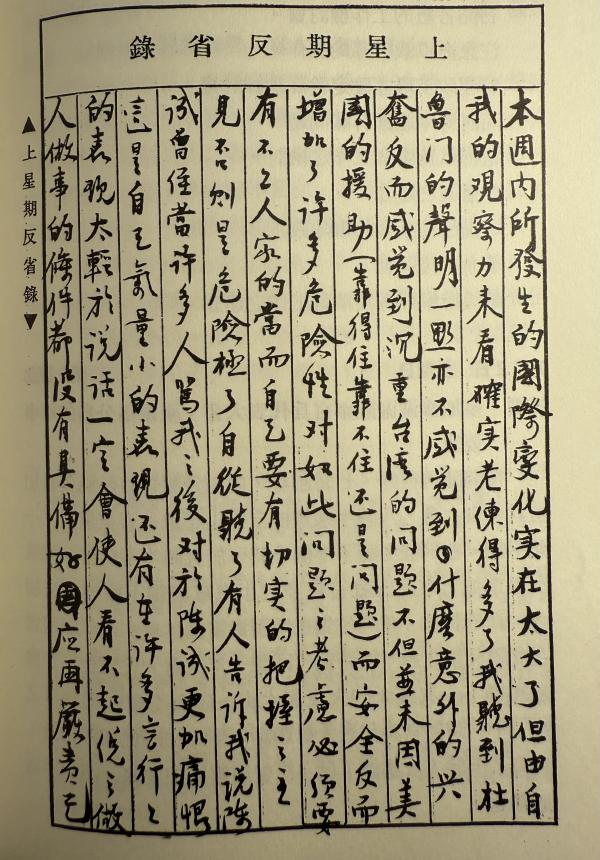 上星期反省錄
本週内所發生的國際變化实在太大了但由自
我的观察力来看確实老练得多了我聽到杜
鲁门的聲明一點亦不感觉到什麽意外的兴
奮反而感觉到沉重台湾的问题不但並未因美
國的援助(靠得住靠不住还是问题)而安全反而
增加了许多危險性对如此问题之考慮必须要
有不上人家的當而自己要有切实的把握之主
見否则是危險極了自從聽了有人告诉我说陈
诚曾經當许多人罵我之後对於陈诚更加痛恨
這是自己氣量小的表现还有在许多言行上
的表现太輕於说话一定會使人看不起總之做
人做事的條件都没有具備好应再嚴责己
▲上星期反省錄▼